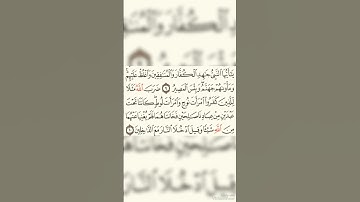 يَٰٓأَيُّهَا ٱلنَّبِىُّ جَٰهِدِ ٱلْكُفَّارَ وَٱلْمُنَٰفِقِينَ وَٱغْلُظْ عَلَيْهِمْ
وَمَأْوَىٰهُمْ جَهَنَّمُ وَبِئْسَ ٱلْمَصِيرُ ٩ ضَرَبَ ٱللَّهُ مَثَلًا
لِّلَّذِينَ كَفَرُوا۟ ٱمْرَأَتَ نُوحٍ وَٱمْرَأَتَ لُوطٍ كَانَتَا تَحْتَ
عَبْدَيْنِ مِنْ عِبَادِنَا صَٰلِحَيْنِ فَخَانَتَاهُمَا فَلَمْ يُغْنِيَا عَنْهُمَا
مِنَ ٱللَّهِ شَيْـًٔا وَقِيلَ ٱدْخُلَا ٱلنَّارَ مَعَ ٱلدَّٰخِلِينَ ١٠